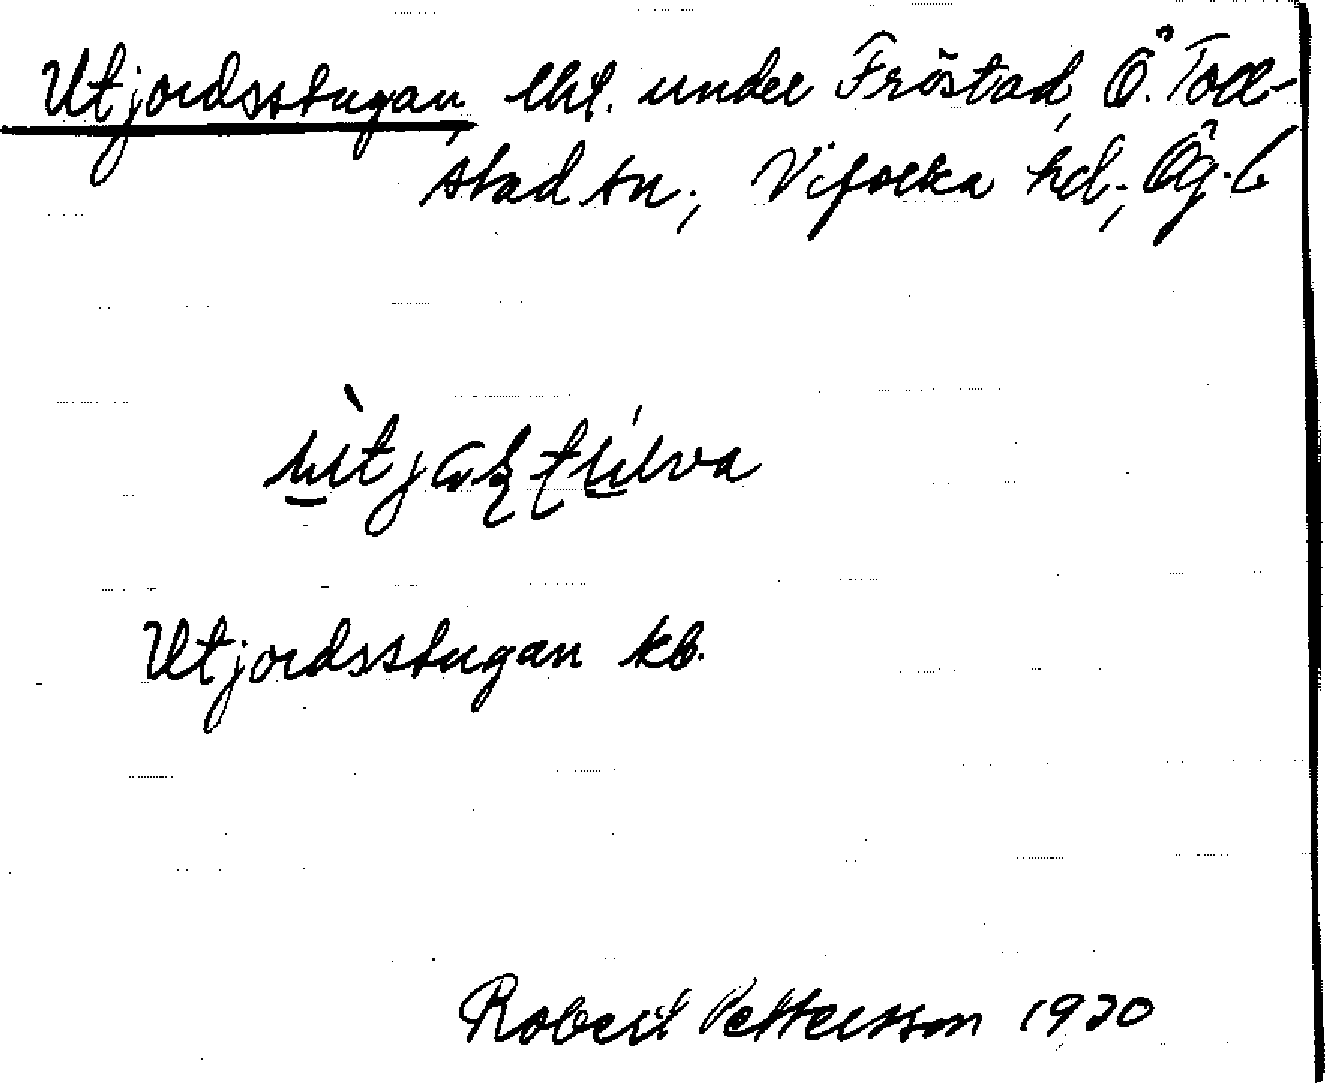 Utjordsstugan, lht. under Fröstad, Ö. Toll-
stad sn., Vifolka hd., Ög. l
Utjordsstugan kb.
Robert Pettersson 1930